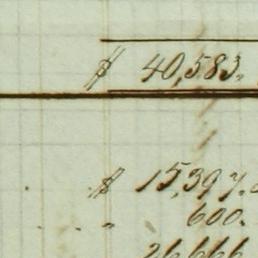 $ 40,583.
$ 15,397.
" 600.
26,666